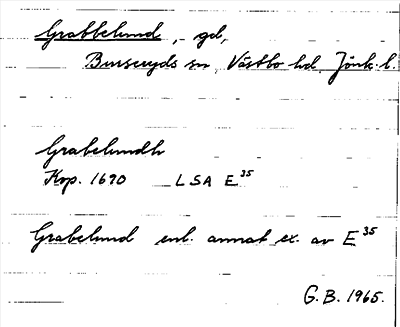 Grabbelund, gd,
Burseryds sn, Västbo hd, Jönk. l.
Grabelundh
Kop. 1690 LSA E 35
Grabelund enl. annat ex. av E 35
G. B. 1965.